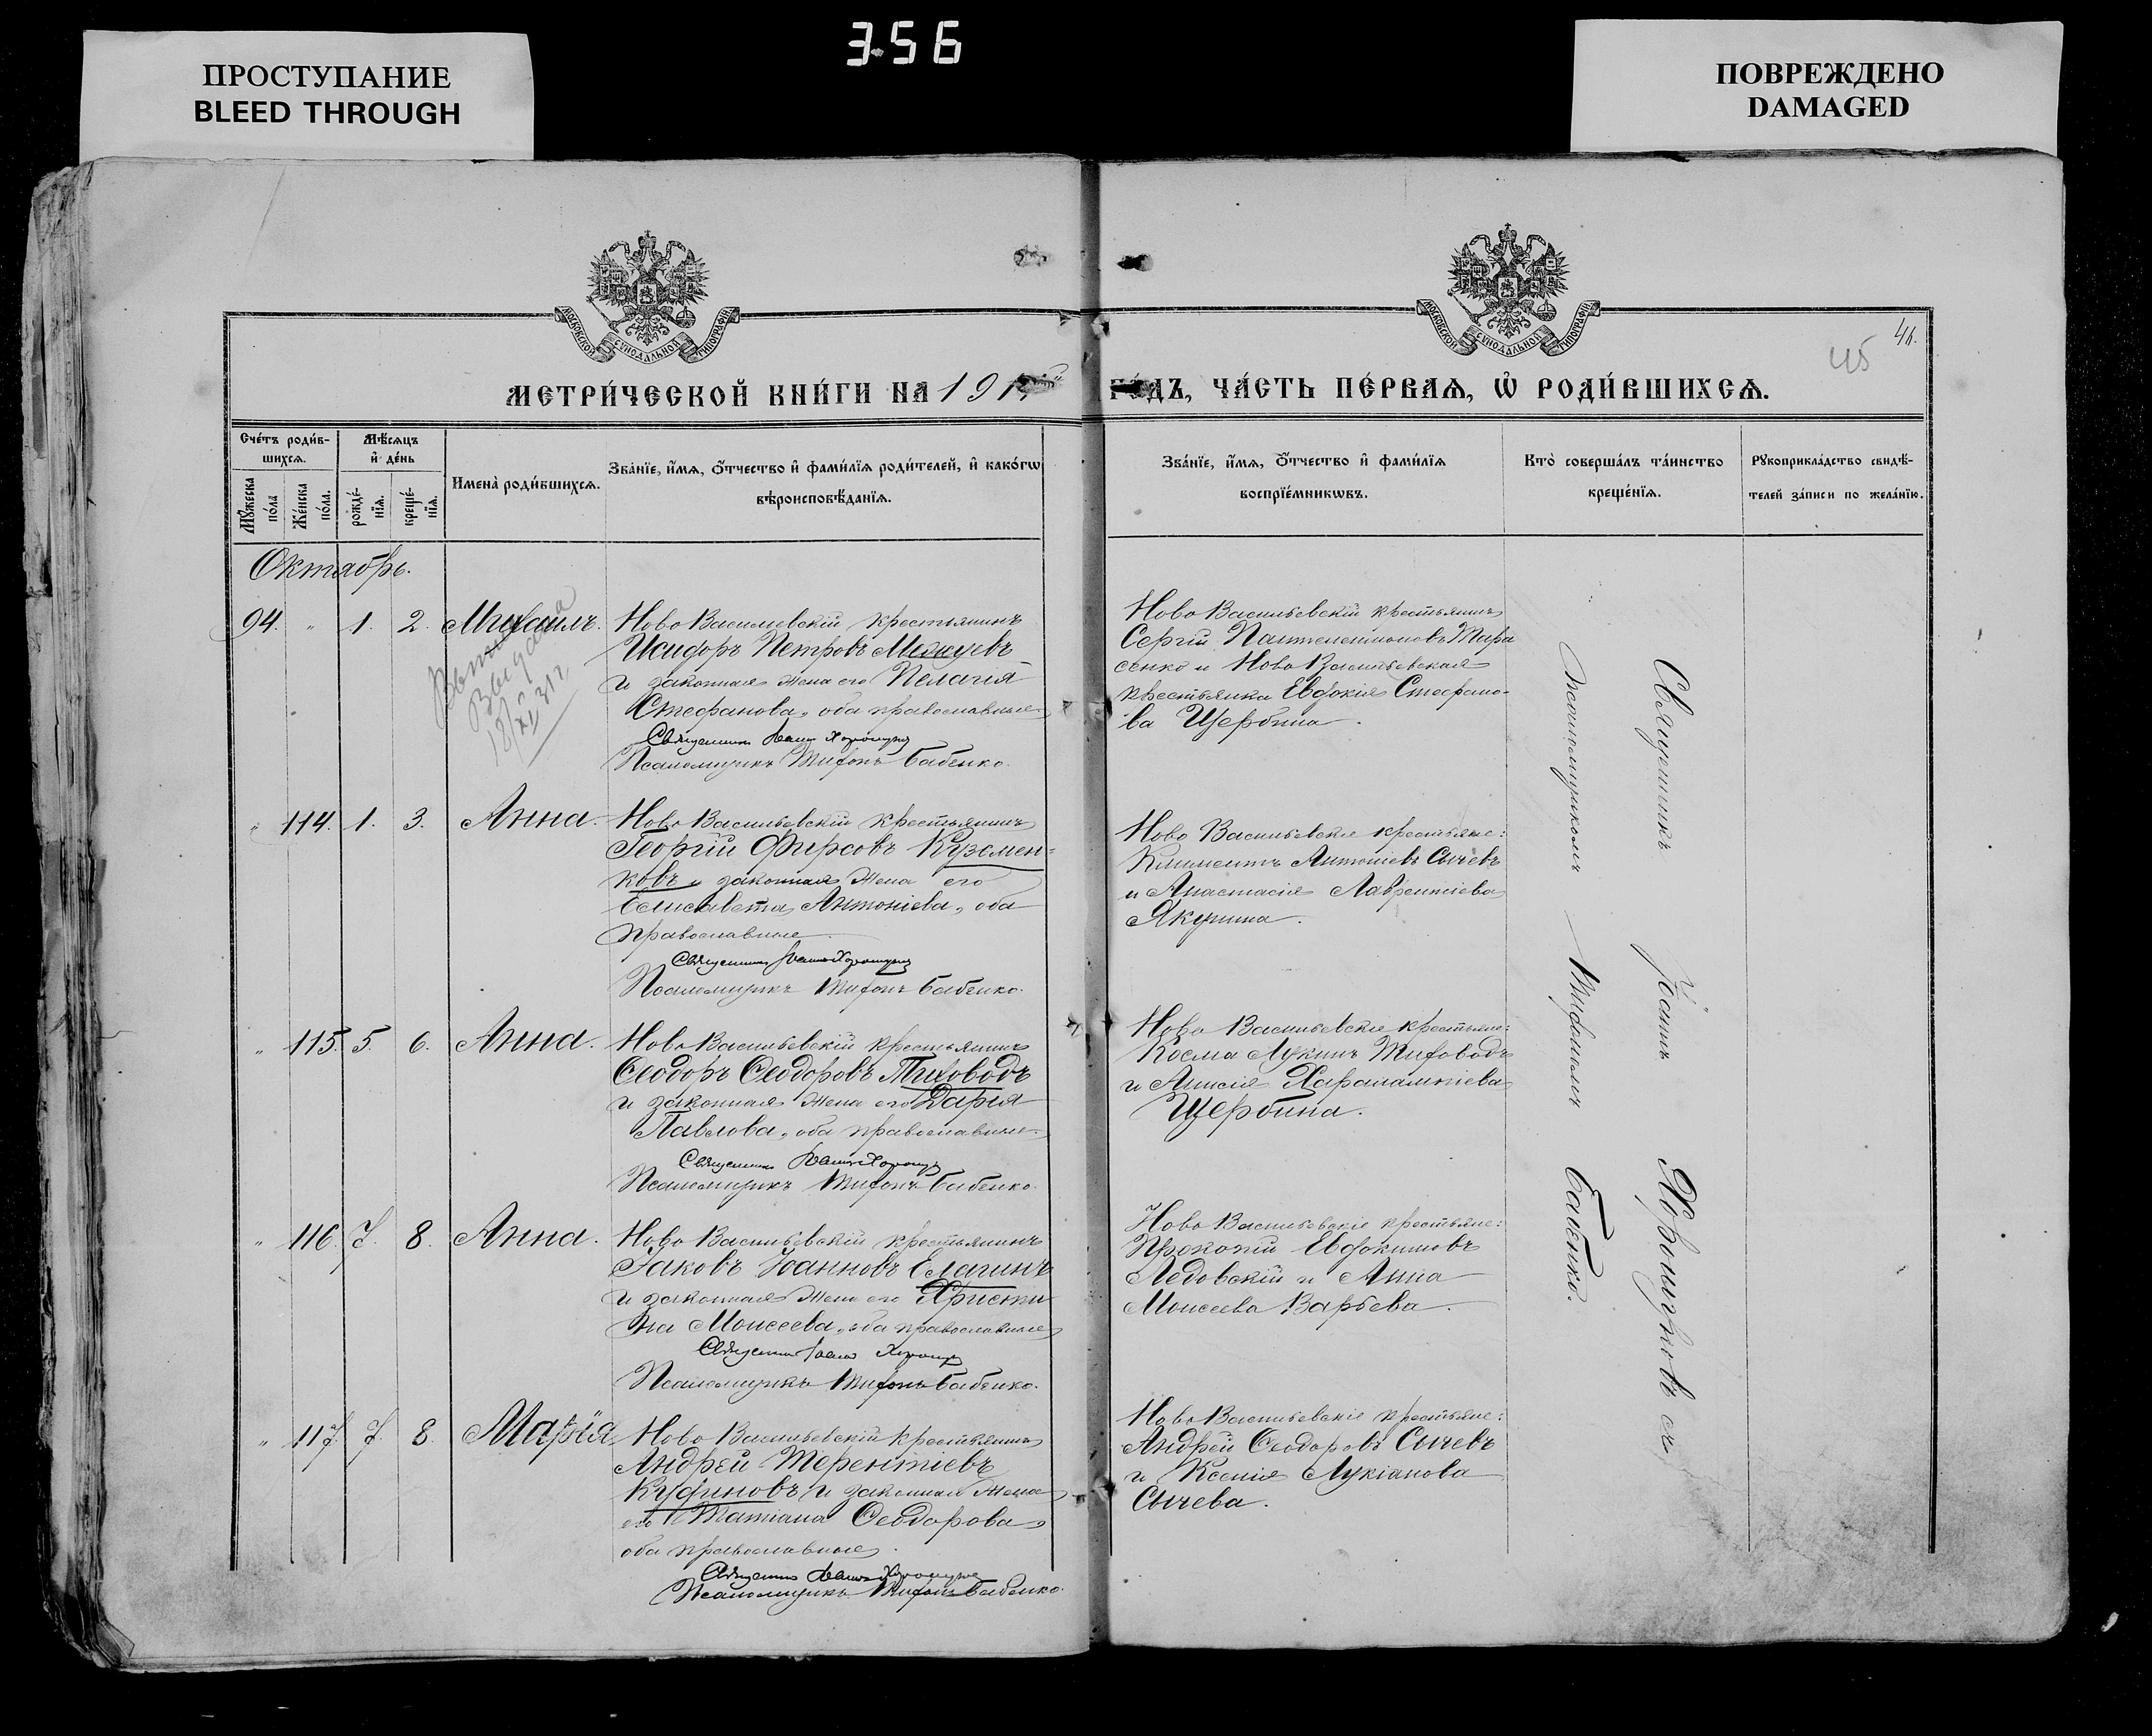 ПРОСТУПАНИЕ
BLEED THROUGH
3.56
ПОВРЕЖДЕНО
DAMAGED
МОСКОВСКОЙ СѴНОДАЛЬНОЙ ТИПОГРАФІИ
МОСКОВСКОЙ СѴНОДАЛЬНОЙ ТИПОГРАФІИ
45
МЕТРИ́ЧЕСКОЙ КНИ́ГИ НА 191
ГО́ДЪ, ЧА́СТЬ ПЕ́РВАЯ, Ѡ҆ РОДИ́ВШИХСЯ.
Сче́тъ роди́в-
шихся.
Мѣ́сяцъ
и҆ де́нь
Мꙋ́жеска
по́ла
Же́нска
по́ла.
рожде́-
нїя.
креще́-
нїя.
Имена̀ роди́вшихся.
Зва́нїе, и҆́мя, ѻ҆́тчество и҆ фами́лїя роди́телей, и҆ како́гѡ
вѣроисповѣ́данїя.
Зва́нїе, и҆́мя, ѻ҆́тчество и҆ фами́лїя
воспрїе́мникѡвъ.
Кто̀ соверша́лъ та́инство
креще́нїя.
Рꙋкоприкла́дство свидѣ́-
телей за́писи по жела́нїю.
Октябрь.
94. " 1. 2. Михаилъ.
Выдана
18/XI 31 г.
Ново Васильевскій крестьянинъ
Исидоръ Петровъ Межуевъ
и законная жена его Пелагія
Стефанова, оба православные
Священникъ Іоаннъ Хорошунъ
Псаломщикъ Тихонъ Бабенко.
Ново Васильевскій крестьянинъ
Сергій Пантелеимоновъ Тара
сенко и Ново Васильевская
крестьянка Евдокія Стефано-
ва Щербина.
" 114. 1. 3. Анна.
Ново Васильевскій крестьянинъ
Георгій Фирсовъ Кузьмен-
ковъ и законная жена его
Елисавета Антоніева, оба
православные
Священникъ Іоаннъ Хорошунъ
Псаломщикъ Тихонъ Бабенко.
Ново Васильевскіе крестьяне:
Климентъ Антоніевъ Сычевъ
и Анастасія Лаврентіева
Якунина.
" 115. 5. 6. Анна.
Ново Васильевскій крестьянинъ
Ѳеодоръ Ѳеодоровъ Тиховодъ
и законная жена его Дарія
Павлова, оба православные.
Священникъ Іоаннъ Хорошунъ
Псаломщикъ Тихонъ Бабенко.
Ново Васильевскіе крестьяне:
Косма Лукинъ Тиховодъ
и Анисія Харалампіева
Щербина.
" 116. 7. 8. Анна.
Ново Васильевскій крестьянинъ
Іаковъ Іоанновъ Елагинъ
и законная жена его Христи
на Моисеева, оба православные
Священникъ Іоаннъ Хорошунъ
Псаломщикъ Тихонъ Бабенко.
Ново Васильевскіе крестьяне:
Прокопій Евдокимовъ
Ледовскій и Анна
Моисеева Варѣева.
" 117. 7. 8. Марія
Ново Васильевскій крестьянинъ
Андрей Терентіевъ
Куфиновъ и законная жена
его Татіана Ѳеодорова,
оба православные.
Священникъ Іоаннъ Хорошунъ
Псаломщикъ Тихонъ Бабенко.
Ново Васильевскіе крестьяне:
Андрей Ѳеодоровъ Сычевъ
и Ксенія Лукіанова
Сычева.
Священникъ Іоаннъ Хорошуновъ съ
псаломщикомъ Тихономъ Бабенко.